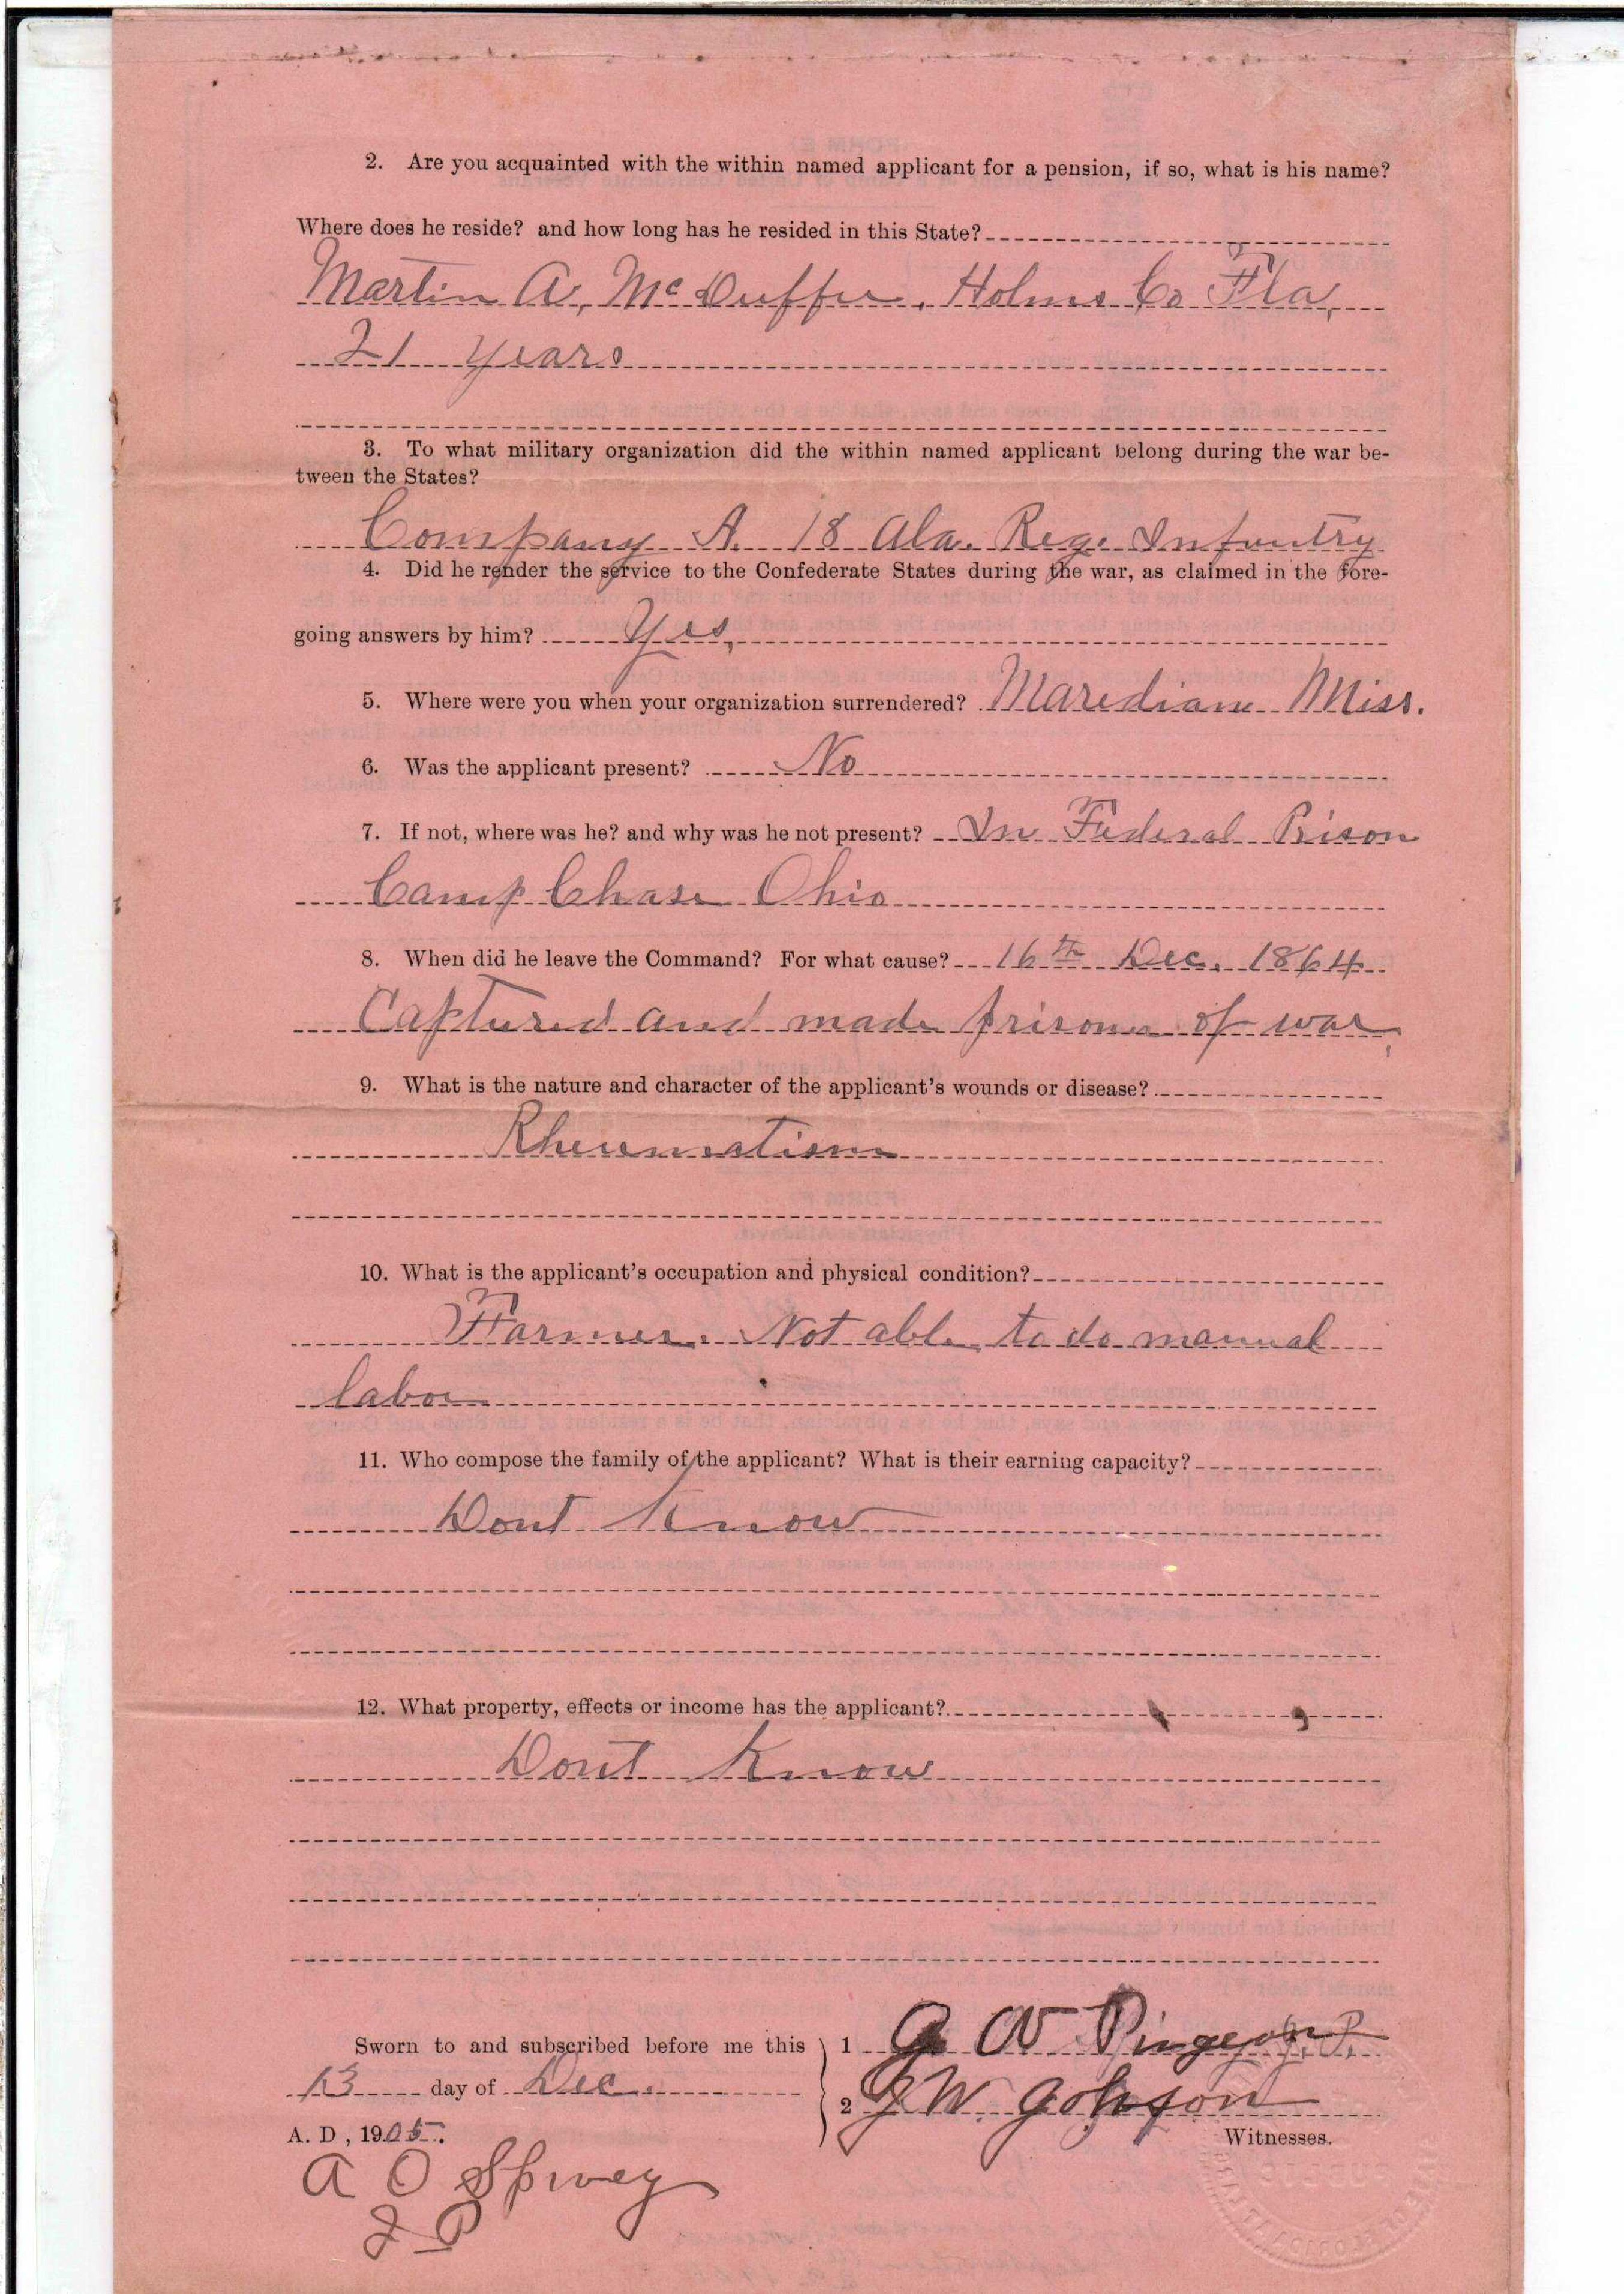 2. Are you acquainted with the within named applicant for a pension, if so, what is his name?
Where does he reside? and how long has he resided in this State?
Martin A, McDuffie, Holms Co Fla,
21 years
3. To what military organization did the within named applicant belong during the war be-
tween the States?
Company A. 18 Ala. Reg. Infuntry
4. Did he render the service to the Confederate States during the war, as claimed in the fore-
going answers by him? Yes,
5. Where were you when your organization surrendered? Maredian Miss.
6. Was the applicant present? No
7. If not, where was he? and why was he not present? In Federal Prison
Camp Chase Ohio
8. When did he leave the Command? For what cause? 16th Dec. 1864
Captured and made prisoner of war,
9. What is the nature and character of the applicant's wounds or disease?
Rheumatism
10. What is the applicant's occupation and physical condition?
Farmer. Not able to do manual
labor
11. Who compose the family of the applicant? What is their earning capacity?
Dont Know
12. What property, effects or income has the applicant?
Dont Know
Sworn to and subscribed before me this
13 day of Dec.
A. D, 1905.
1 G W Pingeon J.P.
2 J W. Johnson
Witnesses.
A O Spivey
J P